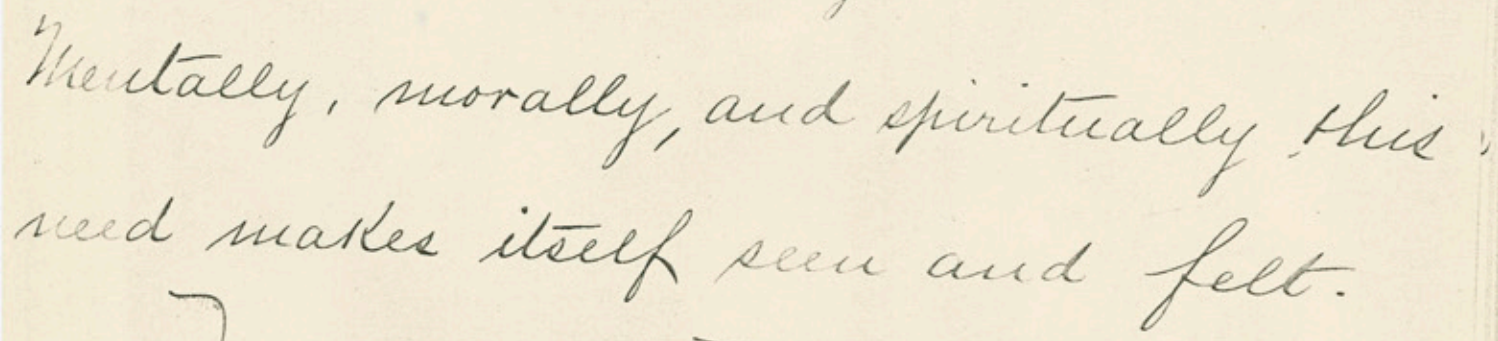 Mentally, morally, and spiritually this
need makes itself seen and felt.